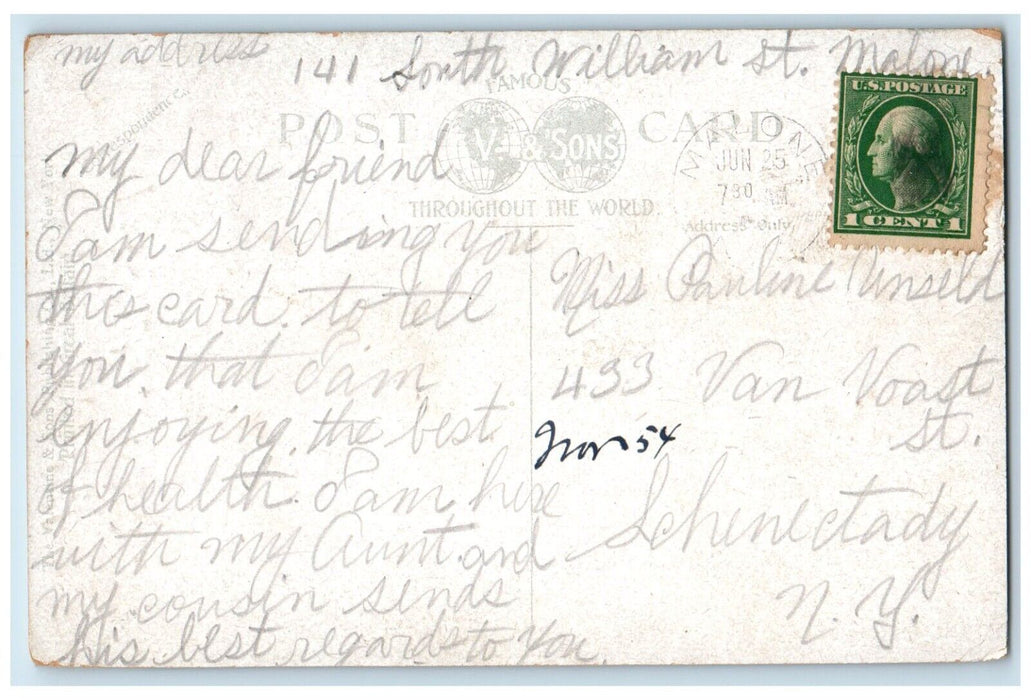 my address 141 South William St. Malone
FAMOUS
POST CARD
V. & SONS
THROUGHOUT THE WORLD.
MALONE
JUN 25
7 30 M.
Address Only
U.S. POSTAGE
1 CENT 1
my dear friend
I am sending you
this card. to tell
you. that I am
enjoying. the best.
of health. I am here
with my Aunt. and
my cousin sends
his best regards to you.
Miss Pauline Unseld
433 Van Voast
St.
54
Schenectady
N. Y.